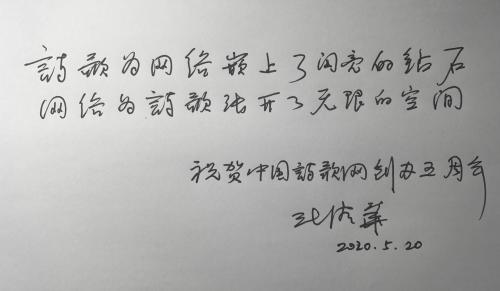 詩歌为网络嵌上了闪亮的钻石
网络为詩歌张开了无限的空间
祝贺中国詩歌网创办五周年
张清華
2020.5.20